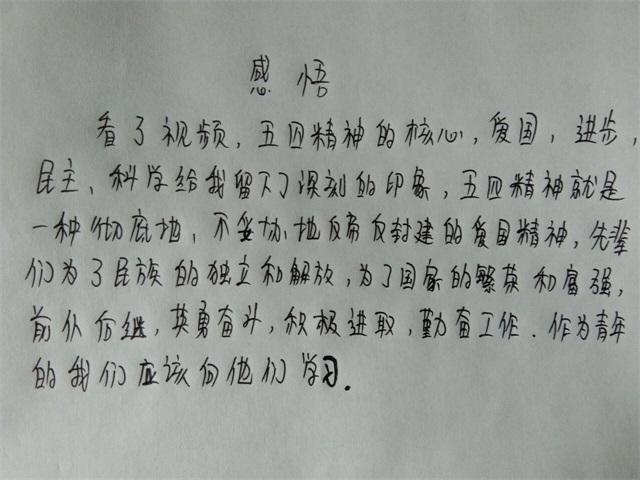 感悟
看了视频,五四精神的核心,爱国,进步,
民主、科学给我留下了深刻的印象,五四精神就是
一种彻底地、不妥协地反帝反封建的爱国精神,先辈
们为了民族的独立和解放,为了国家的繁英和富强,
前仆后继,英勇奋斗,积极进取,勤奋工作.作为青年
的我们应该向他们学习.